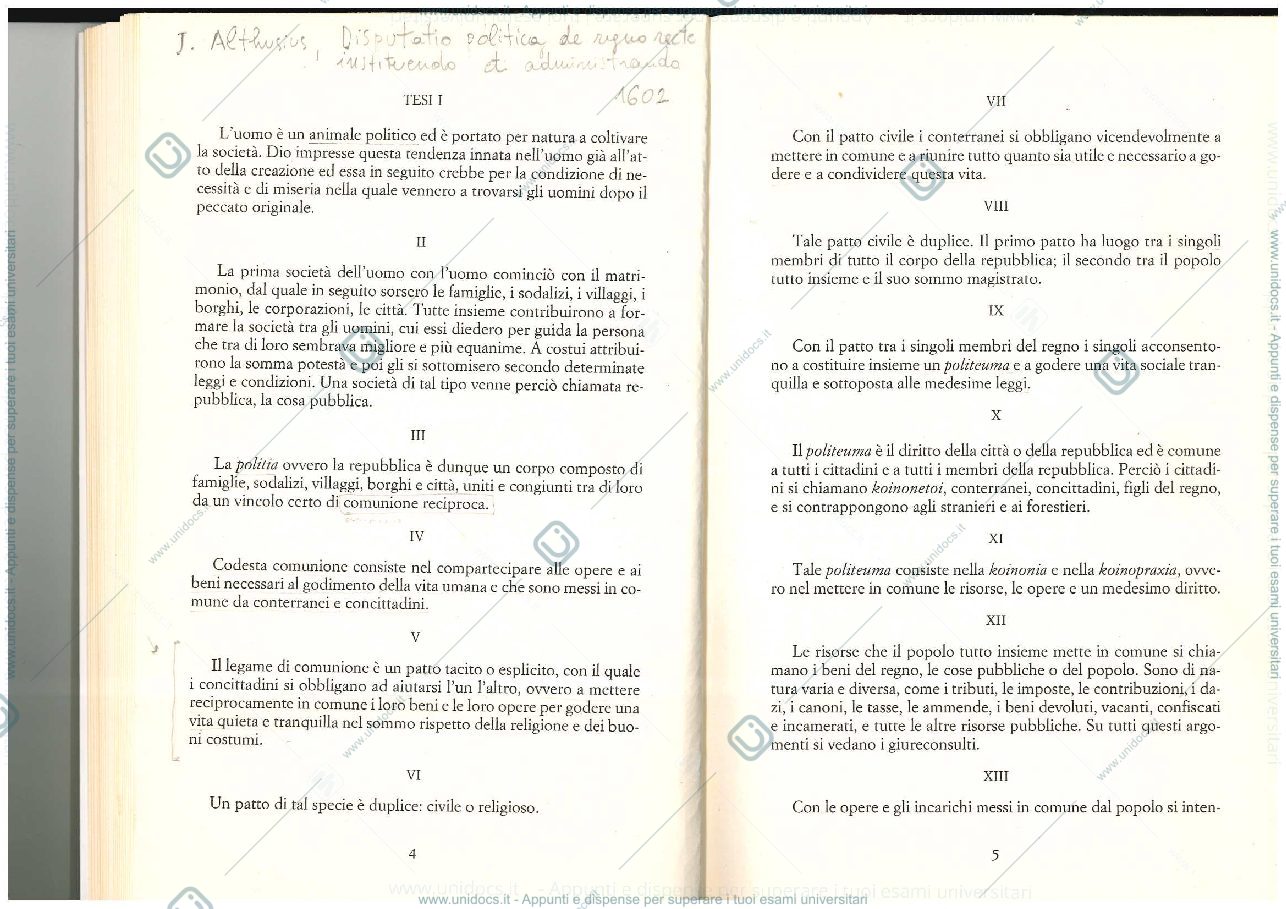 J. Althusius, Disputatio politica de regno recte
instituendo et administrando
1602
TESI I
L'uomo è un animale politico ed è portato per natura a coltivare
la società. Dio impresse questa tendenza innata nell'uomo già all'at-
to della creazione ed essa in seguito crebbe per la condizione di ne-
cessità e di miseria nella quale vennero a trovarsi gli uomini dopo il
peccato originale.
II
La prima società dell'uomo con l'uomo cominciò con il matri-
monio, dal quale in seguito sorsero le famiglie, i sodalizi, i villaggi, i
borghi, le corporazioni, le città. Tutte insieme contribuirono a for-
mare la società tra gli uomini, cui essi diedero per guida la persona
che tra di loro sembrava migliore e più equanime. A costui attribui-
rono la somma potestà e poi gli si sottomisero secondo determinate
leggi e condizioni. Una società di tal tipo venne perciò chiamata re-
pubblica, la cosa pubblica.
III
La politia ovvero la repubblica è dunque un corpo composto di
famiglie, sodalizi, villaggi, borghi e città, uniti e congiunti tra di loro
da un vincolo certo di comunione reciproca.
IV
Codesta comunione consiste nel compartecipare alle opere e ai
beni necessari al godimento della vita umana e che sono messi in co-
mune da conterranei e concittadini.
V
Il legame di comunione è un patto tacito o esplicito, con il quale
i concittadini si obbligano ad aiutarsi l'un l'altro, ovvero a mettere
reciprocamente in comune i loro beni e le loro opere per godere una
vita quieta e tranquilla nel sommo rispetto della religione e dei buo-
ni costumi.
VI
Un patto di tal specie è duplice: civile o religioso.
4
VII
Con il patto civile i conterranei si obbligano vicendevolmente a
mettere in comune e a riunire tutto quanto sia utile e necessario a go-
dere e a condividere questa vita.
VIII
Tale patto civile è duplice. Il primo patto ha luogo tra i singoli
membri di tutto il corpo della repubblica; il secondo tra il popolo
tutto insieme e il suo sommo magistrato.
IX
Con il patto tra i singoli membri del regno i singoli acconsento-
no a costituire insieme un politeuma e a godere una vita sociale tran-
quilla e sottoposta alle medesime leggi.
X
Il politeuma è il diritto della città o della repubblica ed è comune
a tutti i cittadini e a tutti i membri della repubblica. Perciò i cittadi-
ni si chiamano koinonetoi, conterranei, concittadini, figli del regno,
e si contrappongono agli stranieri e ai forestieri.
XI
Tale politeuma consiste nella koinonia e nella koinopraxia, ovve-
ro nel mettere in comune le risorse, le opere e un medesimo diritto.
XII
Le risorse che il popolo tutto insieme mette in comune si chia-
mano i beni del regno, le cose pubbliche o del popolo. Sono di na-
tura varia e diversa, come i tributi, le imposte, le contribuzioni, i da-
zi, i canoni, le tasse, le ammende, i beni devoluti, vacanti, confiscati
e incamerati, e tutte le altre risorse pubbliche. Su tutti questi argo-
menti si vedano i giureconsulti.
XIII
Con le opere e gli incarichi messi in comune dal popolo si inten-
5
www.unidocs.it - Appunti e dispense per superare i tuoi esami universitari